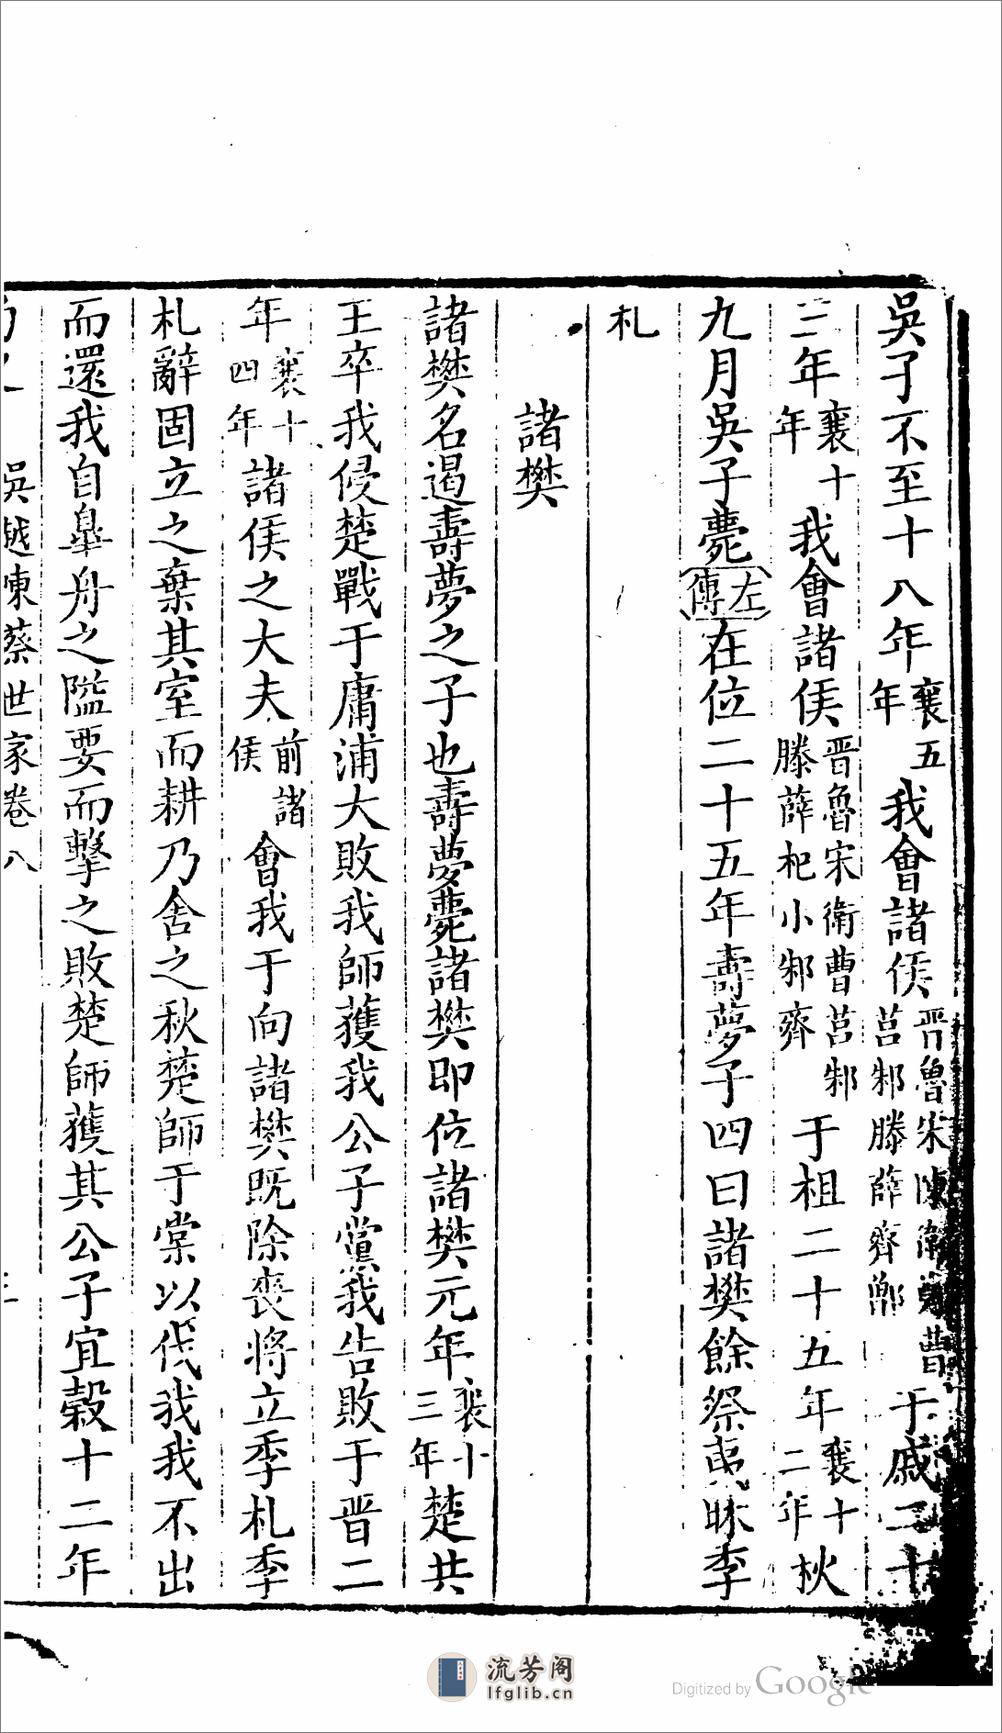 吳子不至十八年襄五年我會諸侯晋魯宋陳衛鄭曹莒邾滕薛齊鄫于戚二十
三年襄十年我會諸侯晋魯宋衛曹莒邾滕薛杞小邾齊于柤二十五年襄十二年秋
九月吳子薨左傳在位二十五年壽夢子四曰諸樊餘祭夷昧季
札
諸樊
諸樊名遏壽夢之子也壽夢薨諸樊即位諸樊元年襄十三年楚共
王卒我侵楚戰于庸浦大敗我師獲我公子黨我告敗于晋二
年襄十四年諸侯之大夫前諸侯會我于向諸樊既除喪將立季札季
札辭固立之棄其室而耕乃舍之秋楚師于棠以伐我我不出
而還我自皐舟之隘要而擊之敗楚師獲其公子宜榖十二年
吳越陳蔡世家卷八
流芳阁
lfglib.cn
Digitized by Google